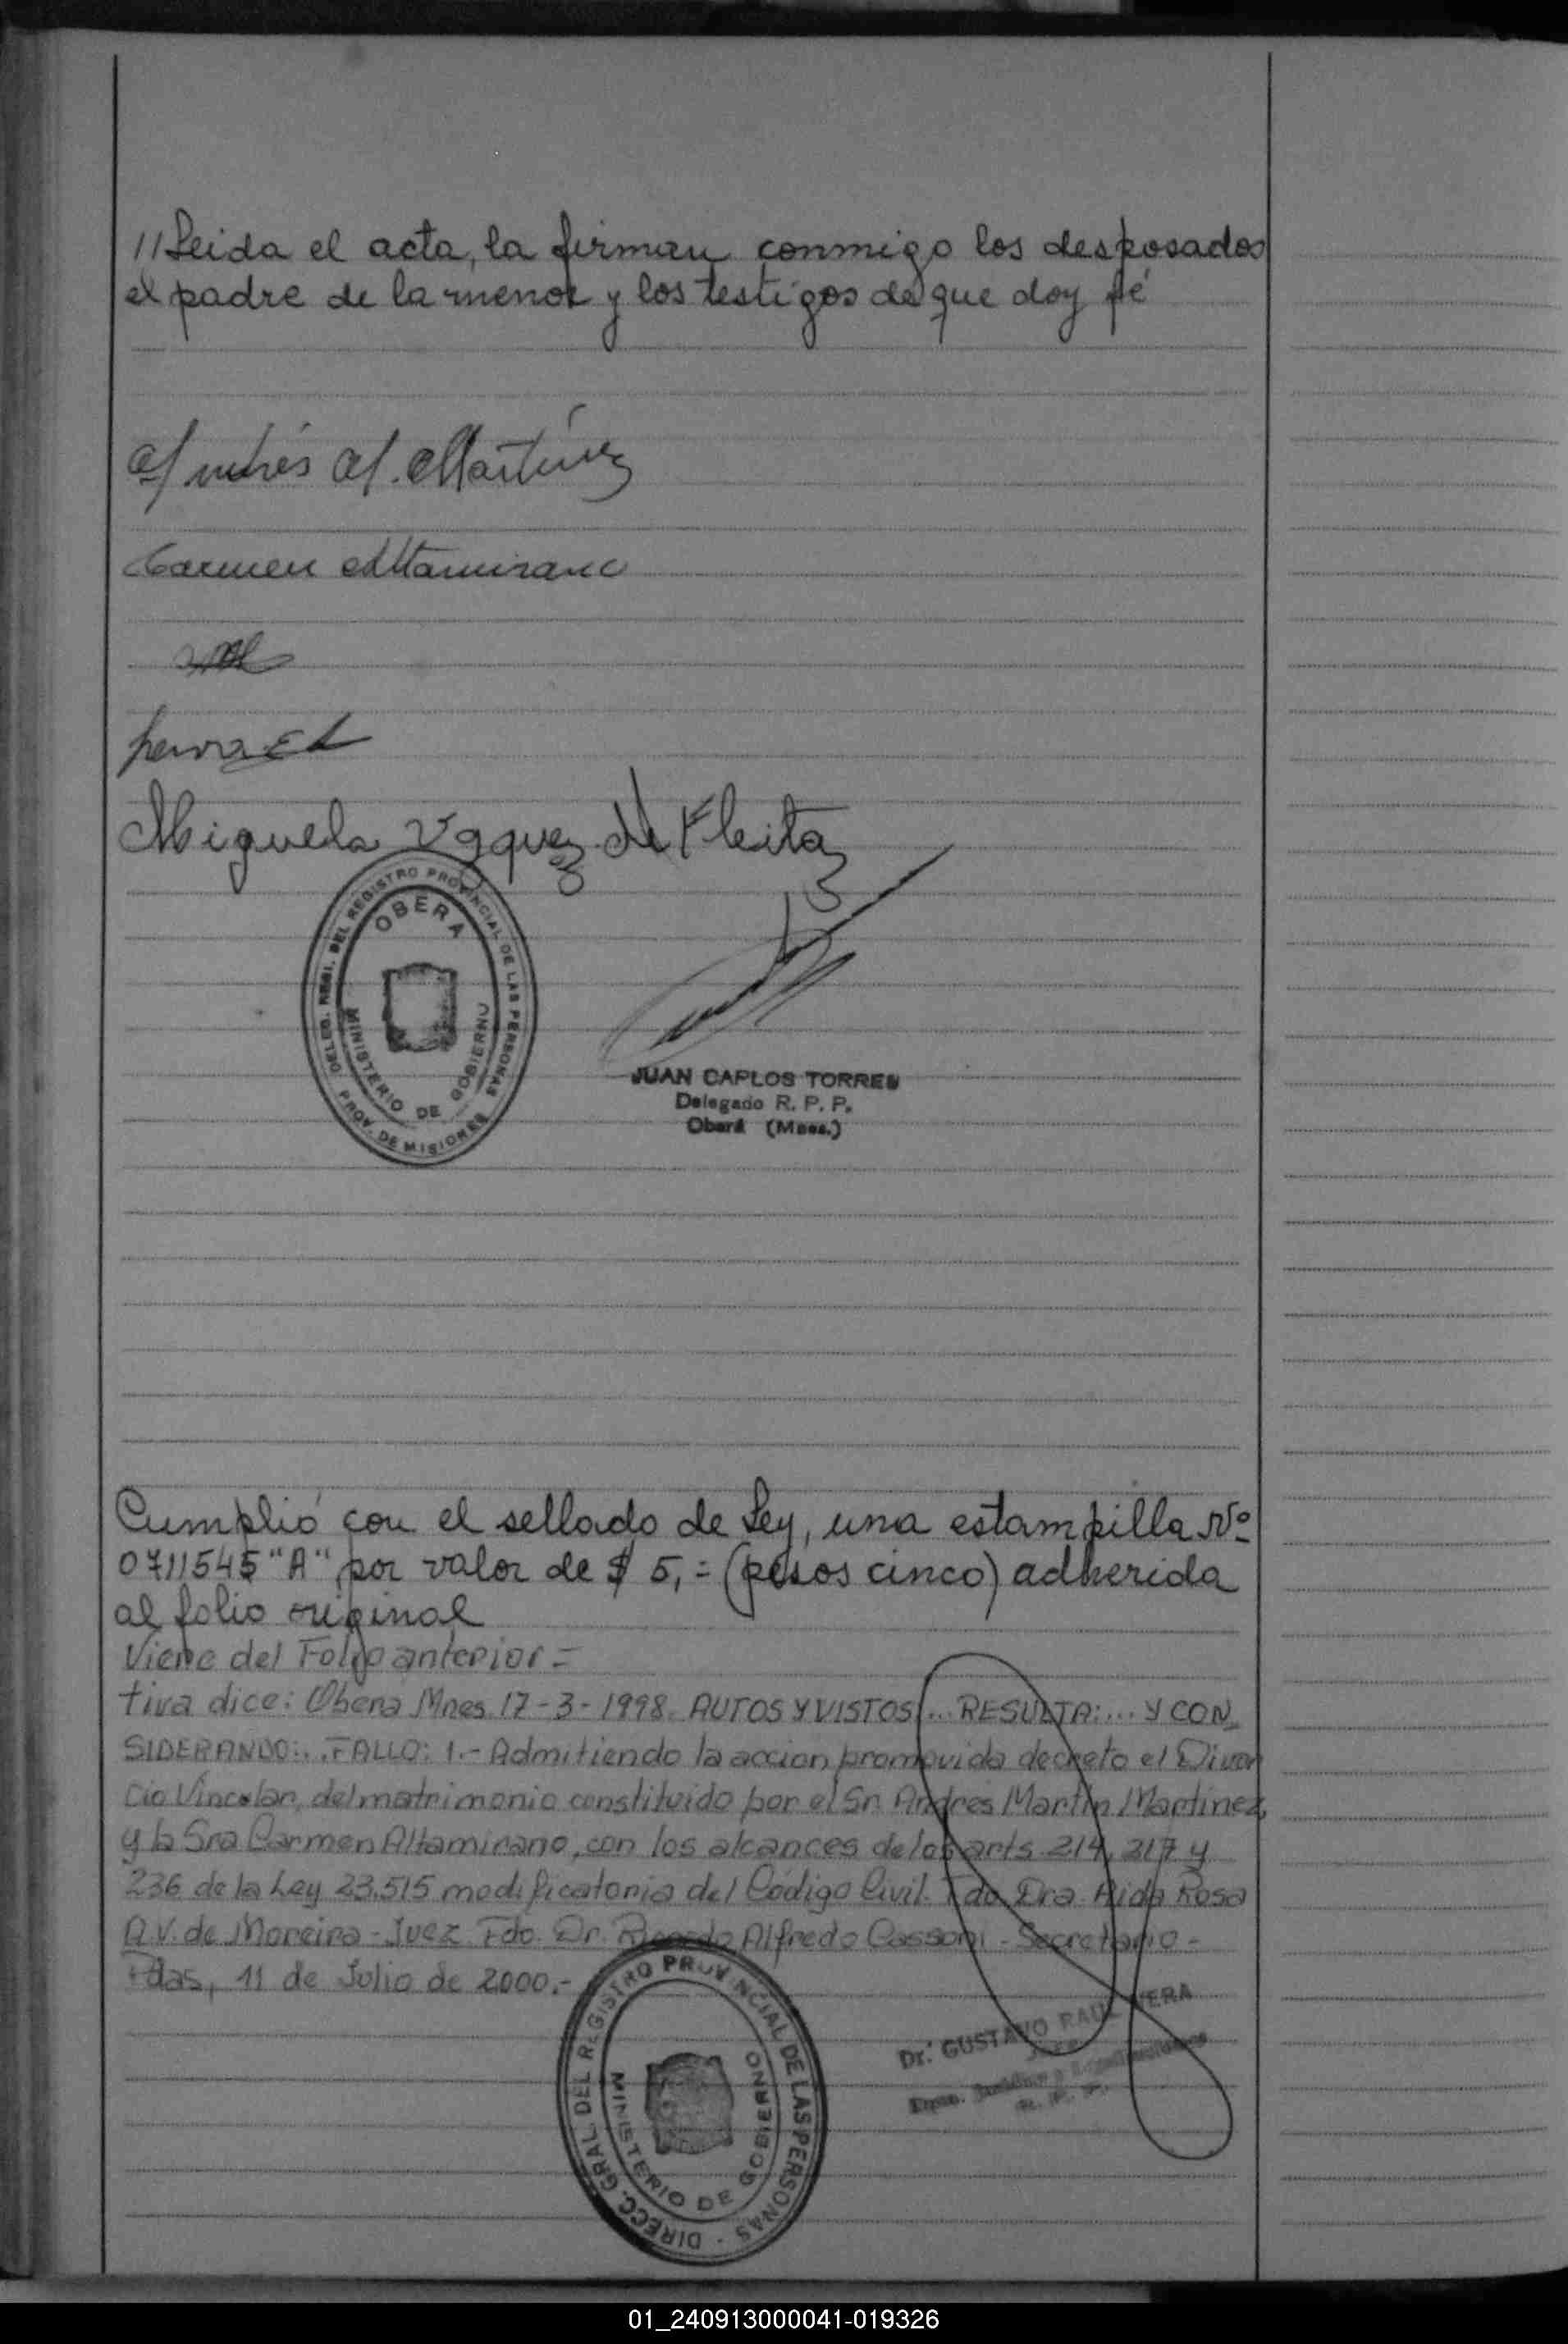 //Leida el acta, la firman conmigo los desposados
el padre de la menor y los testigos de que doy fé
Andrés A. Martínez
Carmen Altamirano
Miguela Vgquez de Fleita
DELEG. REGI. DEL REGISTRO PROVINCIAL DE LAS PERSONAS
OBERA
MINISTERIO DE GOBIERNO
PROV. DE MISIONES
JUAN CARLOS TORRES
Delegado R. P. P.
Oberá (Mnes.)
Cumplió con el sellado de Ley, una estampilla Nº
0711545 "A" por valor de $ 5,= (pesos cinco) adherida
al folio original
Viene del Folio anterior =
tiva dice: Obera Mnes 17-3-1998. AUTOS Y VISTOS:... RESULTA:... Y CON
SIDERANDO:.. FALLO: 1.- Admitiendo la accion promovida decreto el Divor
cio Vincular, del matrimonio constituido por el Sr. Andres Martín Martinez,
y la Sra Carmen Altamirano, con los alcances de los arts. 214, 217 y
236 de la Ley 23.515 modificatoria del Código Civil. Fdo. Dra. Aida Rosa
A.V. de Moreira - Juez. Fdo. Dr. Ricardo Alfredo Cassoni - Secretario -
Pdas, 11 de Julio de 2000.-
DIRECC. GRAL. DEL REGISTRO PROVINCIAL DE LAS PERSONAS -
MINISTERIO DE GOBIERNO
Dr. GUSTAVO RAUL VERA
01_240913000041-019326